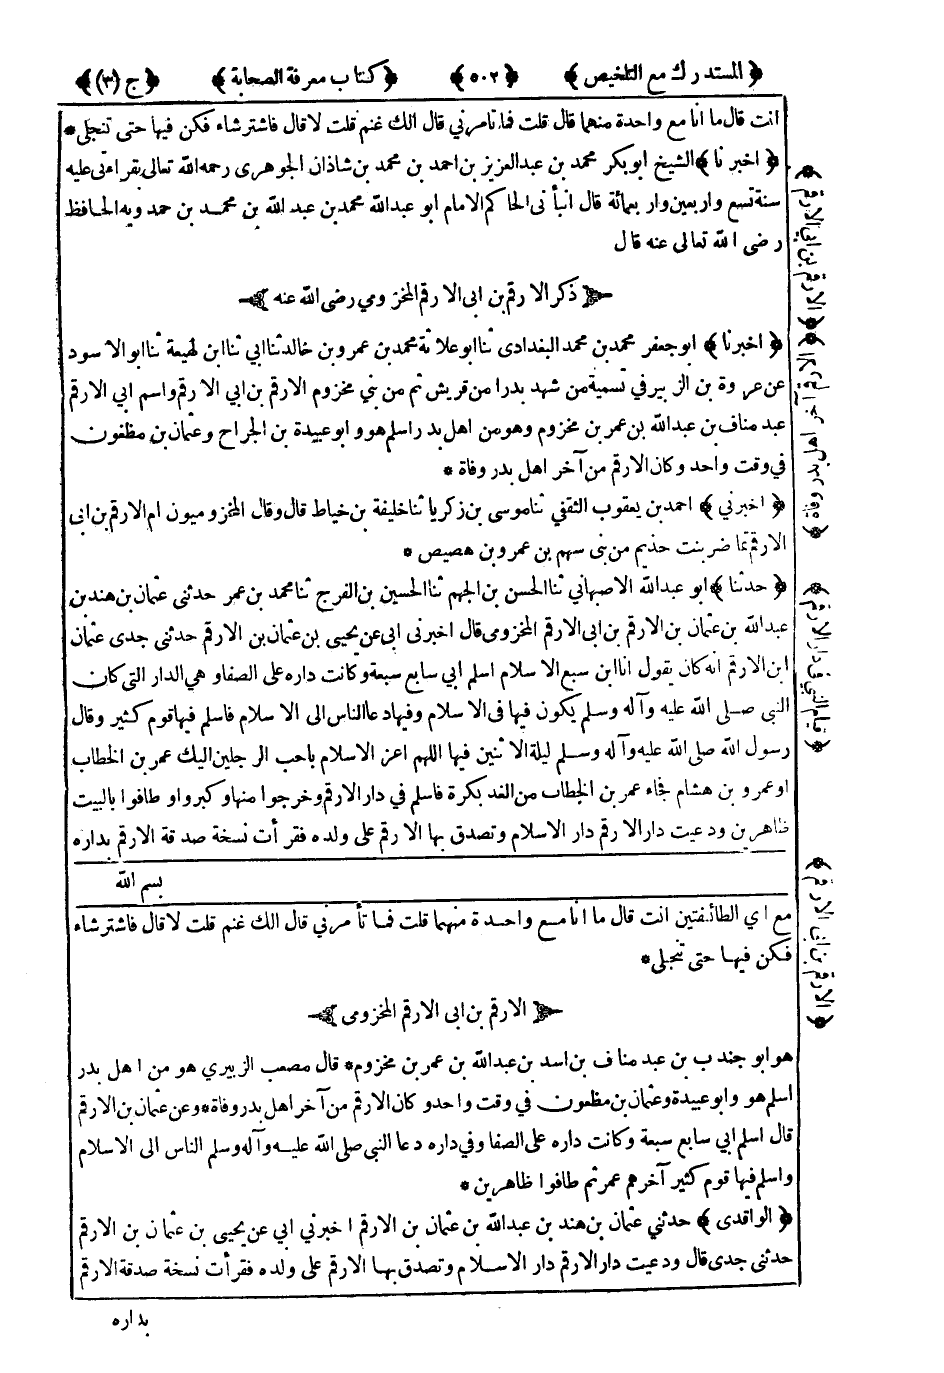 ﴿ المستدرك مع التلخيص ﴾ ﴿ ٥٠٢ ﴾ ﴿ كتاب معرفة الصحابة ﴾ ﴿ ج (٣) ﴾
انت قال ما انا مع واحدة منهما قال قلت فما تامرني قال الك غنم قلت لا قال فاشتر شاء فكن فيها حتى تنجلى *
﴿ اخبرنا ﴾ الشيخ ابو بكر محمد بن عبد العزيز بن احمد بن محمد بن شاذان الجوهرى رحمه الله تعالى بقراءتى عليه
سنة تسع واربعين واربعمائة قال انبأنى الحاكم الامام ابو عبد الله محمد بن عبد الله بن محمد بن حمدويه الحافظ
رضى الله تعالى عنه قال
﴿ ذكر الارقم بن ابى الارقم المخزومي رضى الله عنه ﴾
﴿ اخبرنا ﴾ ابو جعفر محمد بن محمد البغدادى ثنا ابو علاثة محمد بن عمرو بن خالد ثنا ابي ثنا ابن لهيعة ثنا ابو الاسود
عن عروة بن الزبير في تسمية من شهد بدرا من قريش ثم من بني مخزوم الارقم بن ابي الارقم واسم ابي الارقم
عبد مناف بن عبد الله بن عمر بن مخزوم وهو من اهل بدر اسلم هو وابو عبيدة بن الجراح وعثمان بن مظعون
في وقت واحد وكان الارقم من آخر اهل بدر وفاة *
﴿ اخبرني ﴾ احمد بن يعقوب الثقفي ثنا موسى بن زكريا ثنا خليفة بن خياط قال وقال المخزوميون ام الارقم بن ابى
الارقم تماضر بنت حذيم من بنى سهم بن عمرو بن هصيص *
﴿ حدثنا ﴾ ابو عبد الله الاصبهاني ثنا الحسن بن الجهم ثنا الحسين بن الفرج ثنا محمد بن عمر حدثنى عثمان بن هند بن
عبد الله بن عثمان بن الارقم بن ابى الارقم المخزومى قال اخبرنى ابى عن يحيى بن عثمان بن الارقم حدثنى جدى عثمان
ابن الارقم انه كان يقول انا ابن سبع الاسلام اسلم ابي سابع سبعة وكانت داره على الصفا وهي الدار التى كان
النبى صلى الله عليه وآله وسلم يكون فيها فى الاسلام وفيها دعا الناس الى الاسلام فاسلم فيها قوم كثير وقال
رسول الله صلى الله عليه وآله وسلم ليلة الاثنين فيها اللهم اعز الاسلام باحب الرجلين اليك عمر بن الخطاب
او عمرو بن هشام فجاء عمر بن الخطاب من الغد بكرة فاسلم في دار الارقم وخرجوا منها وكبروا و طافوا بالبيت
ظاهرين ودعيت دار الارقم دار الاسلام وتصدق بها الارقم على ولده فقرأت نسخة صدقة الارقم بداره
بسم الله
مع اي الطائفتين انت قال ما انا مع واحدة منهما قلت فما تأمرني قال الك غنم قلت لا قال فاشتر شاء
فكن فيها حتى تنجلى *
﴿ الارقم بن ابى الارقم المخزومى ﴾
هو ابو جندب بن عبد مناف بن اسد بن عبد الله بن عمر بن مخزوم * قال مصعب الزبيري هو من اهل بدر
اسلم هو وابو عبيدة وعثمان بن مظعون في وقت واحد وكان الارقم من آخر اهل بدر وفاة * وعن عثمان بن الارقم
قال اسلم ابي سابع سبعة وكانت داره على الصفا وفي داره دعا النبي صلى الله عليه وآله وسلم الناس الى الاسلام
واسلم فيها قوم كثير آخرهم عمر ثم طافوا ظاهرين *
﴿ الواقدى ﴾ حدثني عثمان بن هند بن عبد الله بن عثمان بن الارقم اخبرني ابي عن يحيى بن عثمان بن الارقم
حدثنى جدى قال ودعيت دار الارقم دار الاسلام وتصدق بها الارقم على ولده فقرأت نسخة صدقة الارقم
بداره
﴿ الارقم بن ابي الارقم ﴾
﴿ الارقم آخر اهل بدر وفاة ﴾
﴿ قيام النبى فى دار الارقم ﴾
﴿ الارقم بن ابى الارقم ﴾